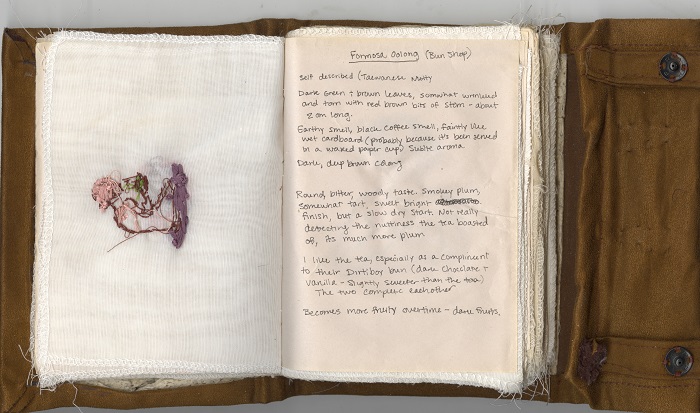 Formosa Oolong (Bun Shop)
Self described (Taewanese Nutty
Dark Green + brown leaves, somwhat wrinkled
and torn with red brown bits of stem - about
2 cm long.
Earthy smell, black coffee smell, faintly like
wet cardboard (probably because it's been served
in a waxed paper cup) Subtle aroma
Dark, deep brown
Round, bitter, woody taste. Smokey plum,
somewhat tart, sweet bright
finish, but a slow dry start. Not really
detecting the nuttiness the tea boasted
of, its much more plum
I like the tea, especially as a compliment
to their Dirtiboy bun (dark chocolate +
Vanilla - Slightly sweeter than the tea)
The two complete eachother
Becomes more fruity overtime - dark fruits.